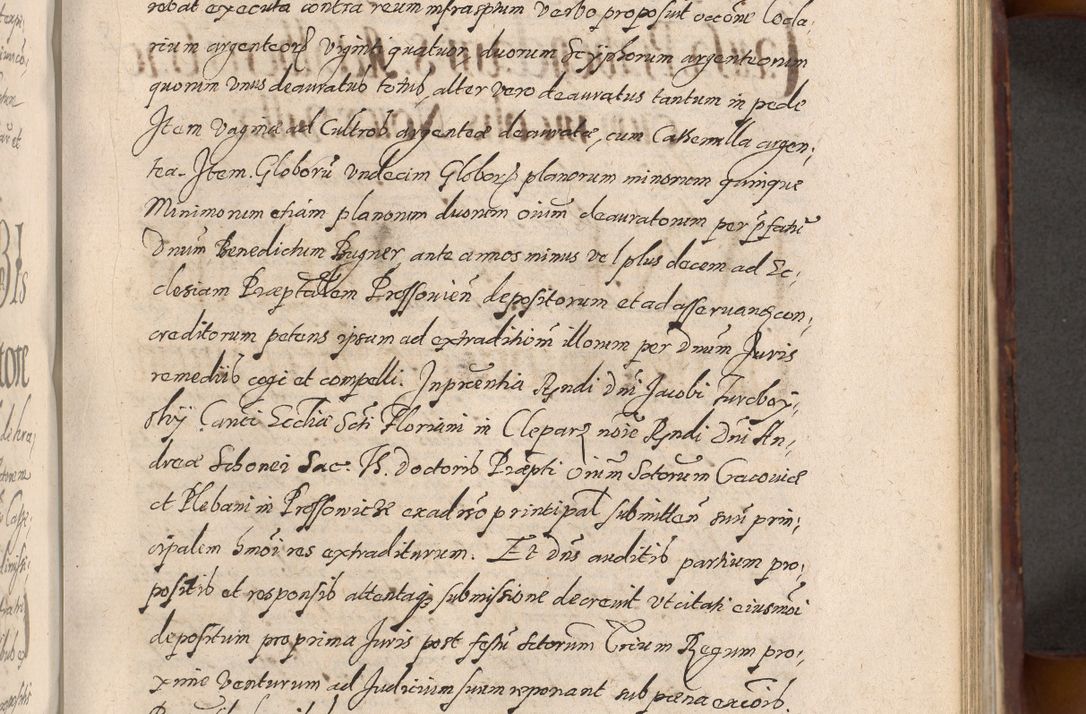 robat executa contra reum infrasptum verbo proposuit occone Cocla,
rium argenteorꝝ viginti quatuor duorum Scyphorum argenteorum
quorum vnus deauratus totus, alter vero deauratus tantum in pede
Item vaginæ ad Cultrob argenteæ deauratæ, cum Cathenulla argen,
tea. Item. Globorũ vndecim Globorꝝ planorum minorum quinque
Minimorum etiam planorum duorum oium̃ deauratorum per p̃fatũ
Dnum̃ Benedictum Bugner ante annos minus vel plus decem ad Ec,
clesiam Præptalem Prossovien̄ depositorum et ad asseruand con,
creditorum petens ipsum ad extraditiom̃ illorum per Dnum̃ Juris
remediis cogi et compelli. In prēntia Rndi Dni Jacobi Turoboy,
skij Canci Ecctiæ Scti Floriani in Clepar noīe Rndi Dni An,
dreæ Schonei Sac. Th. Doctoris Præpti Oium̃ Sctorum Cracouiæ
et Plebani in Prossowice exaduo principal submitten̄ suũ prin,
cipalem hm̃oi res extraditurum. Et Dns auditis partium pro,
positis et responsis attentaqꝫ submissione decreuit vt citati eiusmõi
depositum pro prima Juris post festũ Sctorum Trium Regum pro,
xime venturum ad Judicium suum reponant sub pœna excois.